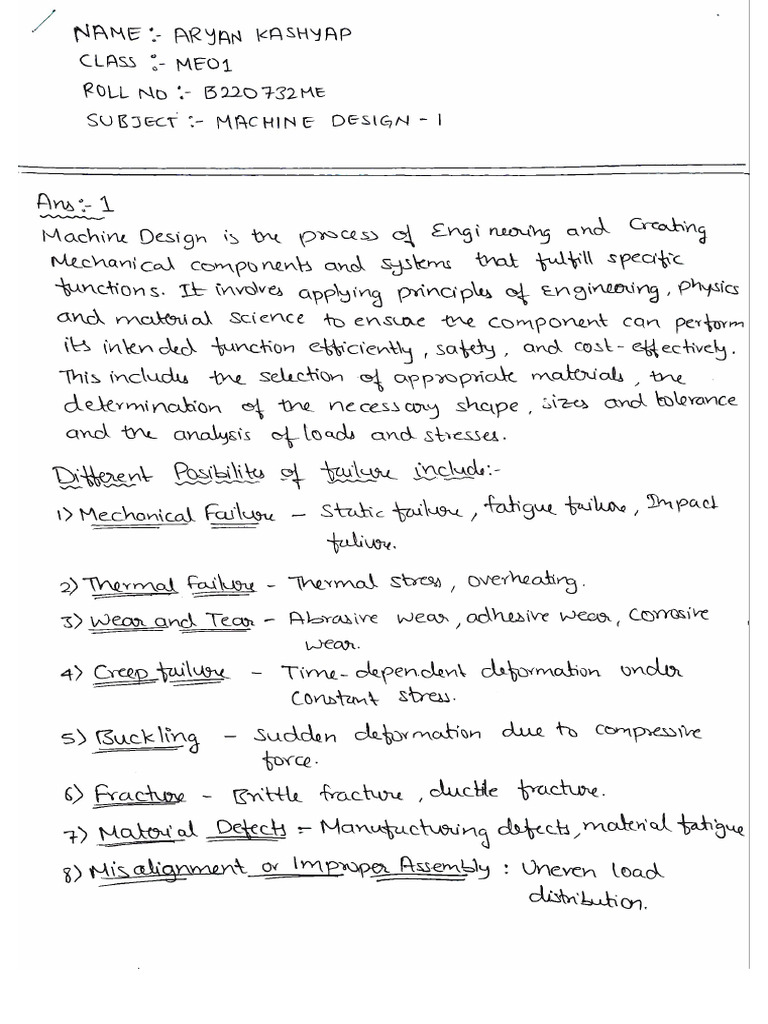 NAME :- ARYAN KASHYAP
CLASS :- ME01
ROLL NO :- B220732ME
SUBJECT :- MACHINE DESIGN - 1
Ans:- 1
Machine Design is the process of Engineering and Creating
Mechanical components and systems that fulfill specific
functions. It involves applying principles of Engineering, physics
and material science to ensure the component can perform
its intended function efficiently, safety, and cost-effectively.
This includes the selection of appropriate materials, the
determination of the necessary shape, sizes and tolerance
and the analysis of loads and stresses.
Different Posibilites of failure include:-
1) Mechonical Failure - Static failure, fatigue failure, Impact
falivre.
2) Thermal Failure - Thermal stress, overheating.
3) Wear and Tear - Abrasive wear, adhesive wear, corrosive
wear.
4) Creep failure - Time-dependent deformation under
constant stress.
5) Buckling - Sudden deformation due to compressive
force.
6) Fracture - Brittle fracture, ductile fracture.
7) Material Defects :- Manufucturing defects, material fatigue
8) Misalignment or Improper Assembly : Uneven load
distribution.